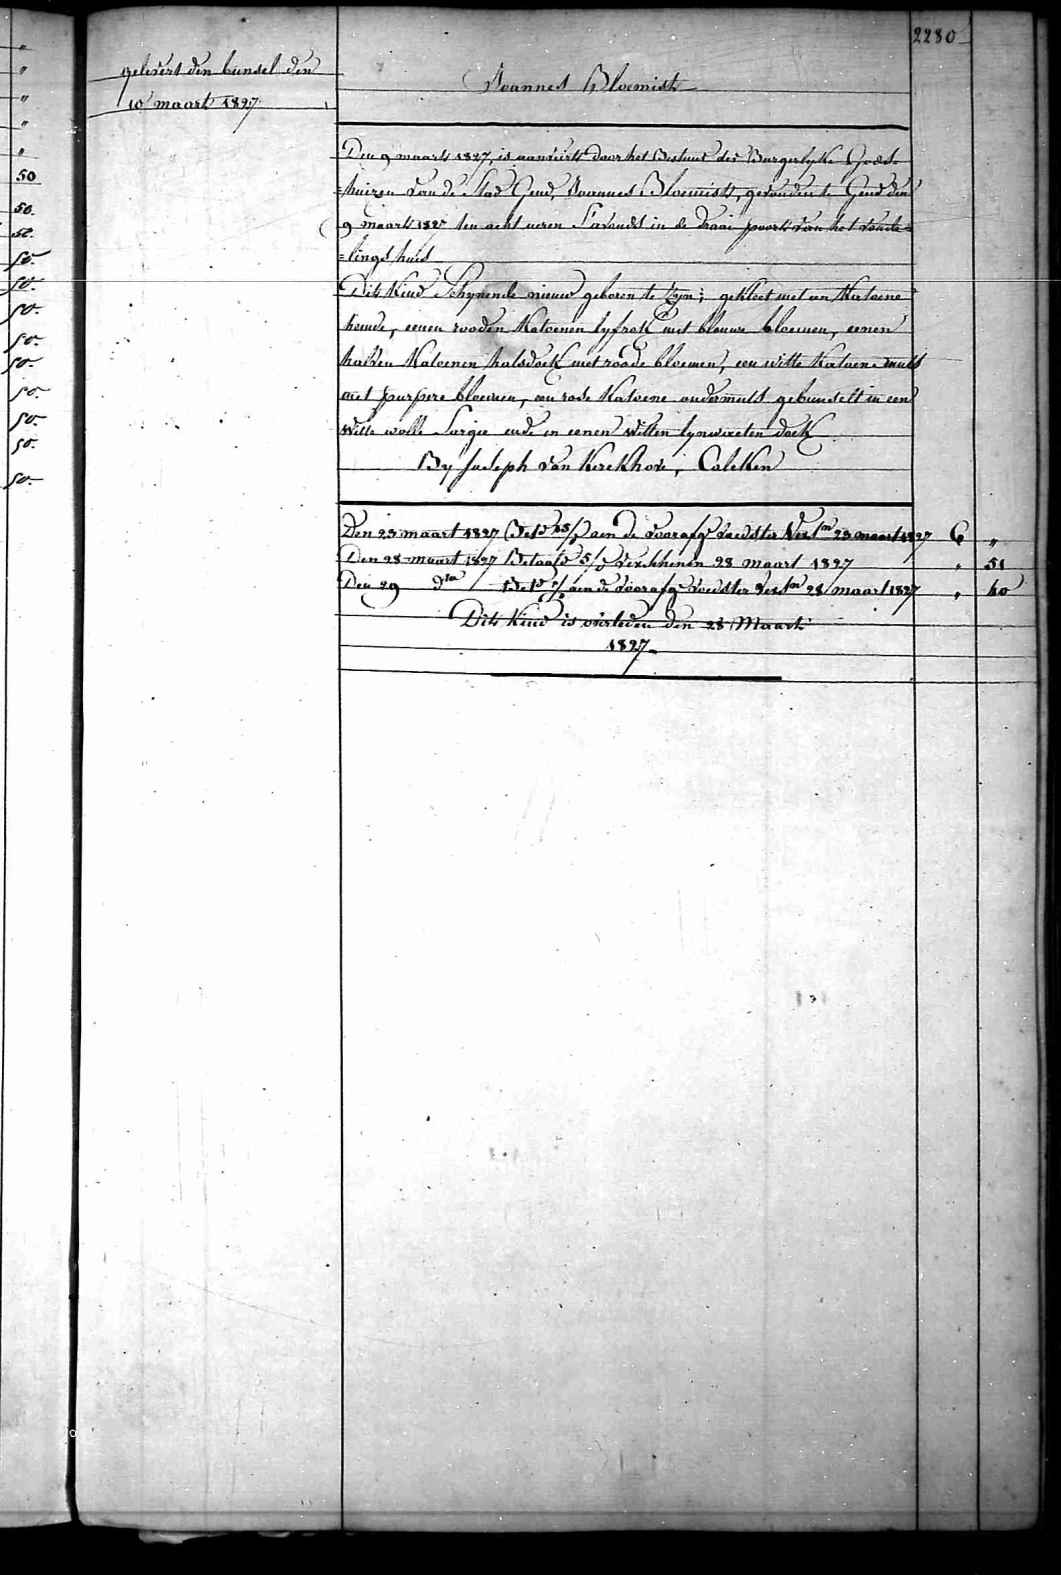 2280
gelevert den bunsel den
10 maart 1827
Joannes Bloemist
Den 9 maart 1827, is aanveirt door het Bestuur der Burgerlyke Gods-
=huizen van de Stad Gend, Joannes Bloemist, gevonden te Gend den
9 maart 1827 ten acht uren S'avonds in de draai poort van het vonde=
=lings huis
Dits Kind Schynende nieuw geboren te zyn; gekleet met een Katoene
hemde, eenen rooden Katoenen lyfrok met blauwe bloemen, eenen
halven Katoenen halsdoek met roode bloemen, een witte Katoene muts
met purpere bloemen, een rode Katoene ondermuts gebunselt in een
Witte wolle Sargie ende in eenen Witten lynwaeten doek
By Joseph van Kerckhove, Calcken
Den 23 maart 1827 Bet.d aen de voorafg voedster Ver.en 23 maart 1827 6 "
Den 28 maart 1827 Betaald 5/ Verschenen 28 maart 1827 " 51
Den 29 d.to Bet.d aen de voorafg voedster Ver.en 28 maart 1827 " 40
Dits Kind is overleden den 28 Maart
1827.
"
"
"
"
"
50
50.
50.
50.
50.
50.
50.
50.
50.
50.
50.
50.